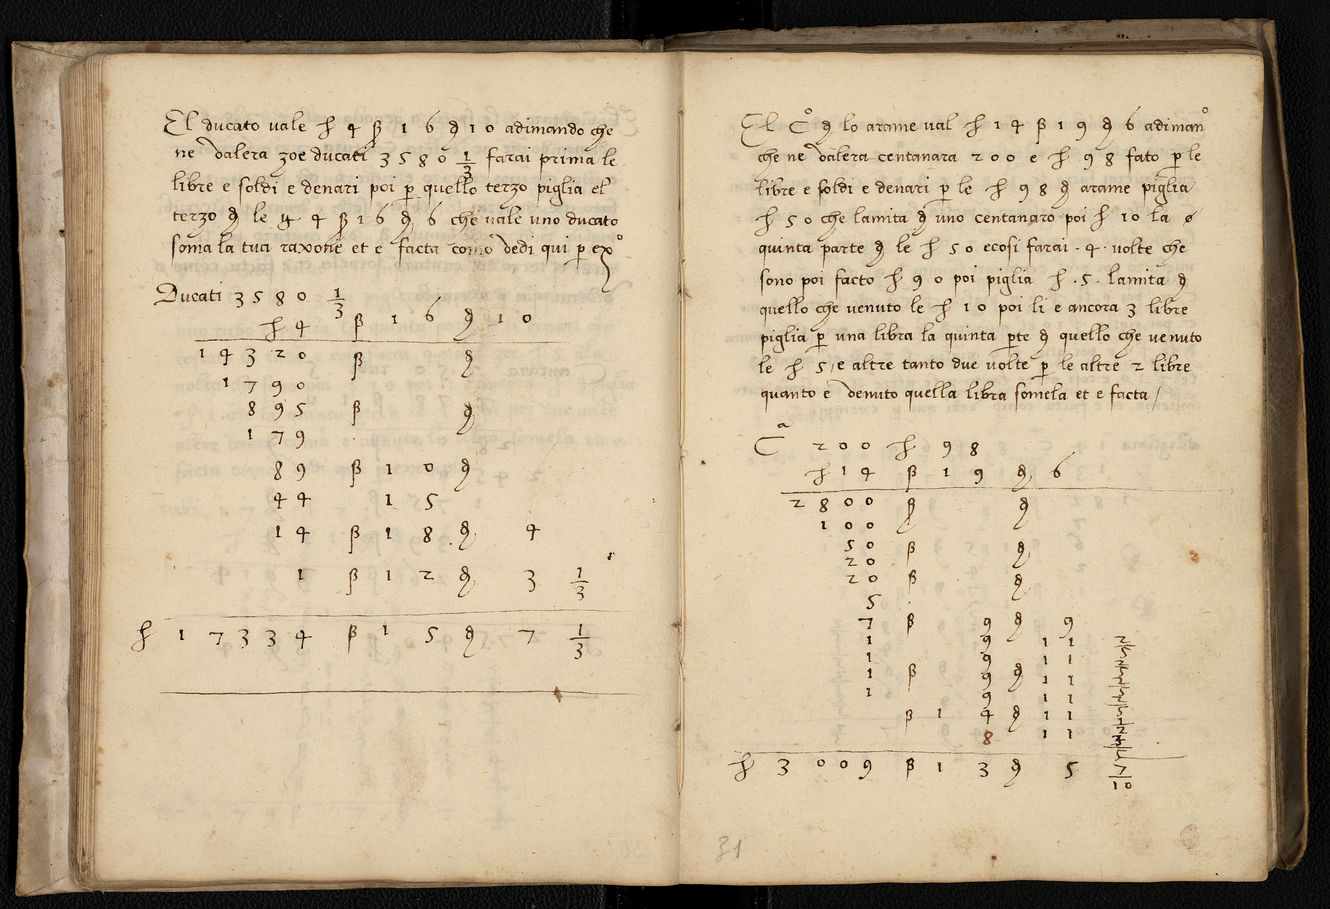 El ducato uale ħ 4 ß 1 6 ꝺ 1 0 adimando che
ne valera zoe ducati 3 5 8 0 1/3 farai prima le
libre e soldi e denari poi ꝑ quello terzo piglia el
terzo ꝺ le ħ 4 ß 1 6 ꝺ 6 che uale uno ducato
soma la tua raxone et e facta como vedi qui ꝑ exº
Ducati 3 5 8 0 1/3
ħ 4 ß 1 6 ꝺ 1 0
1 4 3 2 0 ß ꝺ
1 7 9 0
8 9 5 ß ꝺ
1 7 9
8 9 ß 1 0 ꝺ
4 4 1 5
1 4 ß 1 8 ꝺ 4
1 ß 1 2 ꝺ 3 1/3
ħ 1 7 3 3 4 ß 1 5 ꝺ 7 1/3
El Cº ꝺ lo arame ual ħ 1 4 ß 1 9 ꝺ 6 adimanº
che ne valera centanara 2 0 0 e ħ 9 8 fato ꝑ le
libre e soldi e denari ꝑ le ħ 9 8 ꝺ arame piglia
ħ 5 0 che lamita ꝺ uno centanaro poi ħ 1 0 la
quinta parte ꝺ le ħ 5 0 ecosi farai · 4 · uolte che
sono poi facto ħ 9 0 poi piglia ħ · 5 · lamita ꝺ
quello che uenuto le ħ 1 0 poi li e ancora 3 libre
piglia ꝑ una libra la quinta ꝑte ꝺ quello che uenuto
le ħ 5 / e altre tanto due uolte ꝑ le altre 2 libre
quanto e venuto quella libra somela et e facta /
Cª 2 0 0 ħ 9 8
ħ 1 4 ß 1 9 ꝺ 6
2 8 0 0 ß ꝺ
1 0 0
5 0 ß ꝺ
2 0
2 0 ß ꝺ
5
7 ß 9 ꝺ 9
1 9 1 1 2/5
1 9 1 1
1 ß 9 ꝺ 1 1
1 9 1 1
ß 1 4 ꝺ 1 1
8 1 1
ħ 3 0 0 9 ß 1 3 ꝺ 5 7/10
31